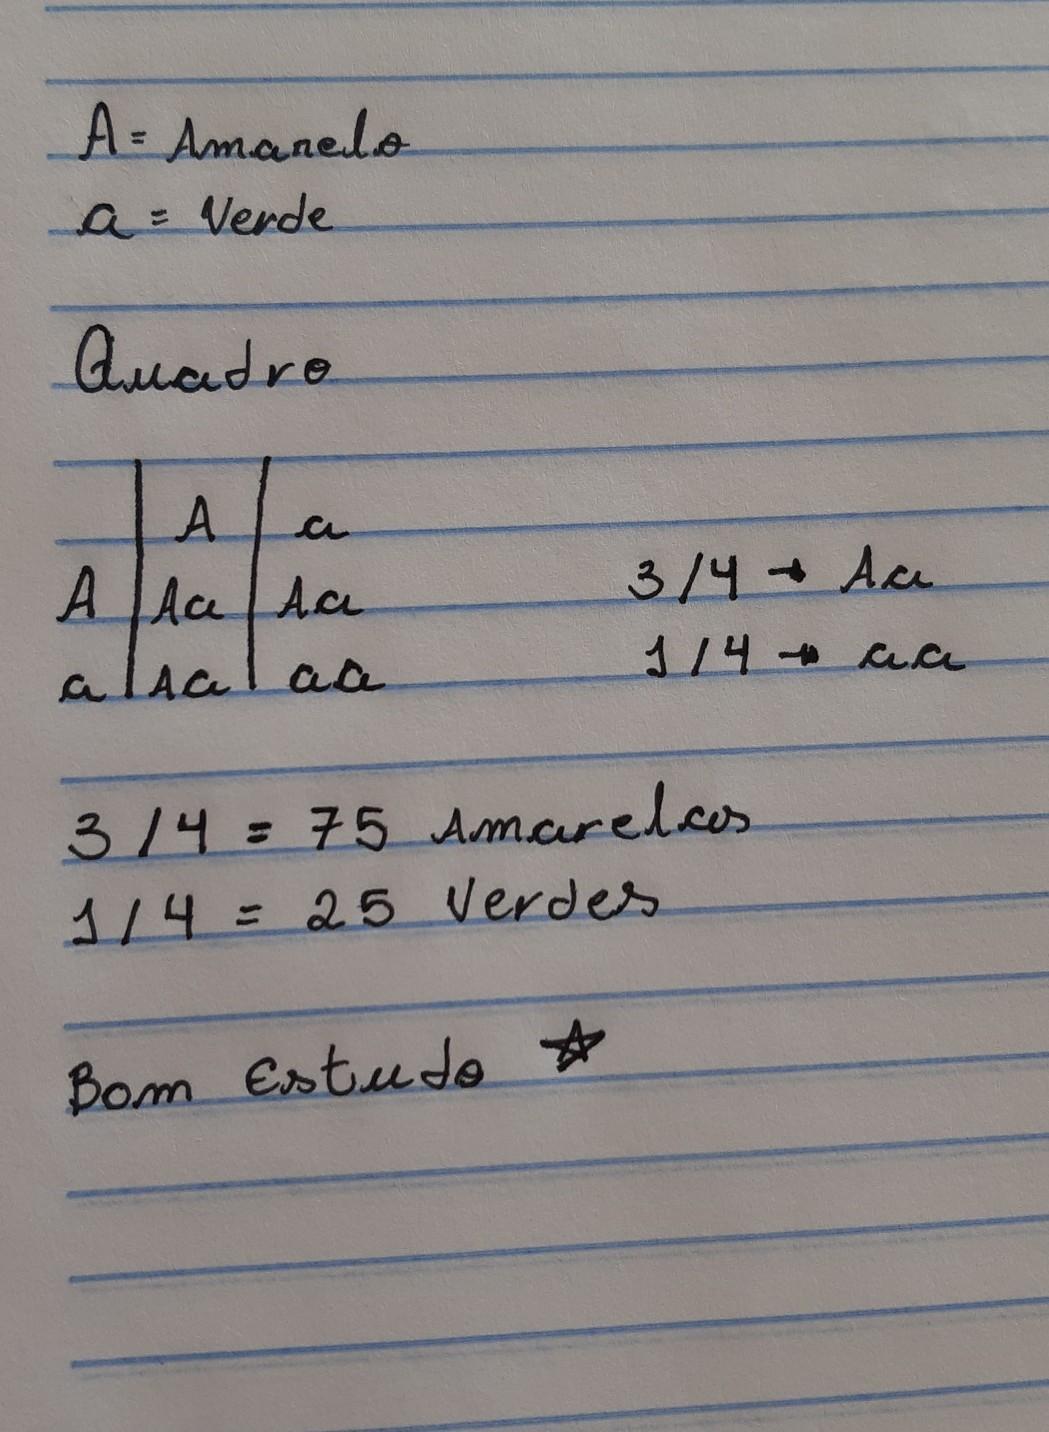 A = Amarelo
a = Verde
Quadro
A a
A Aa Aa
a Aa aa
3/4 → Aa
1/4 → aa
3/4 = 75 Amarelos
1/4 = 25 Verdes
Bom Estudo ☆